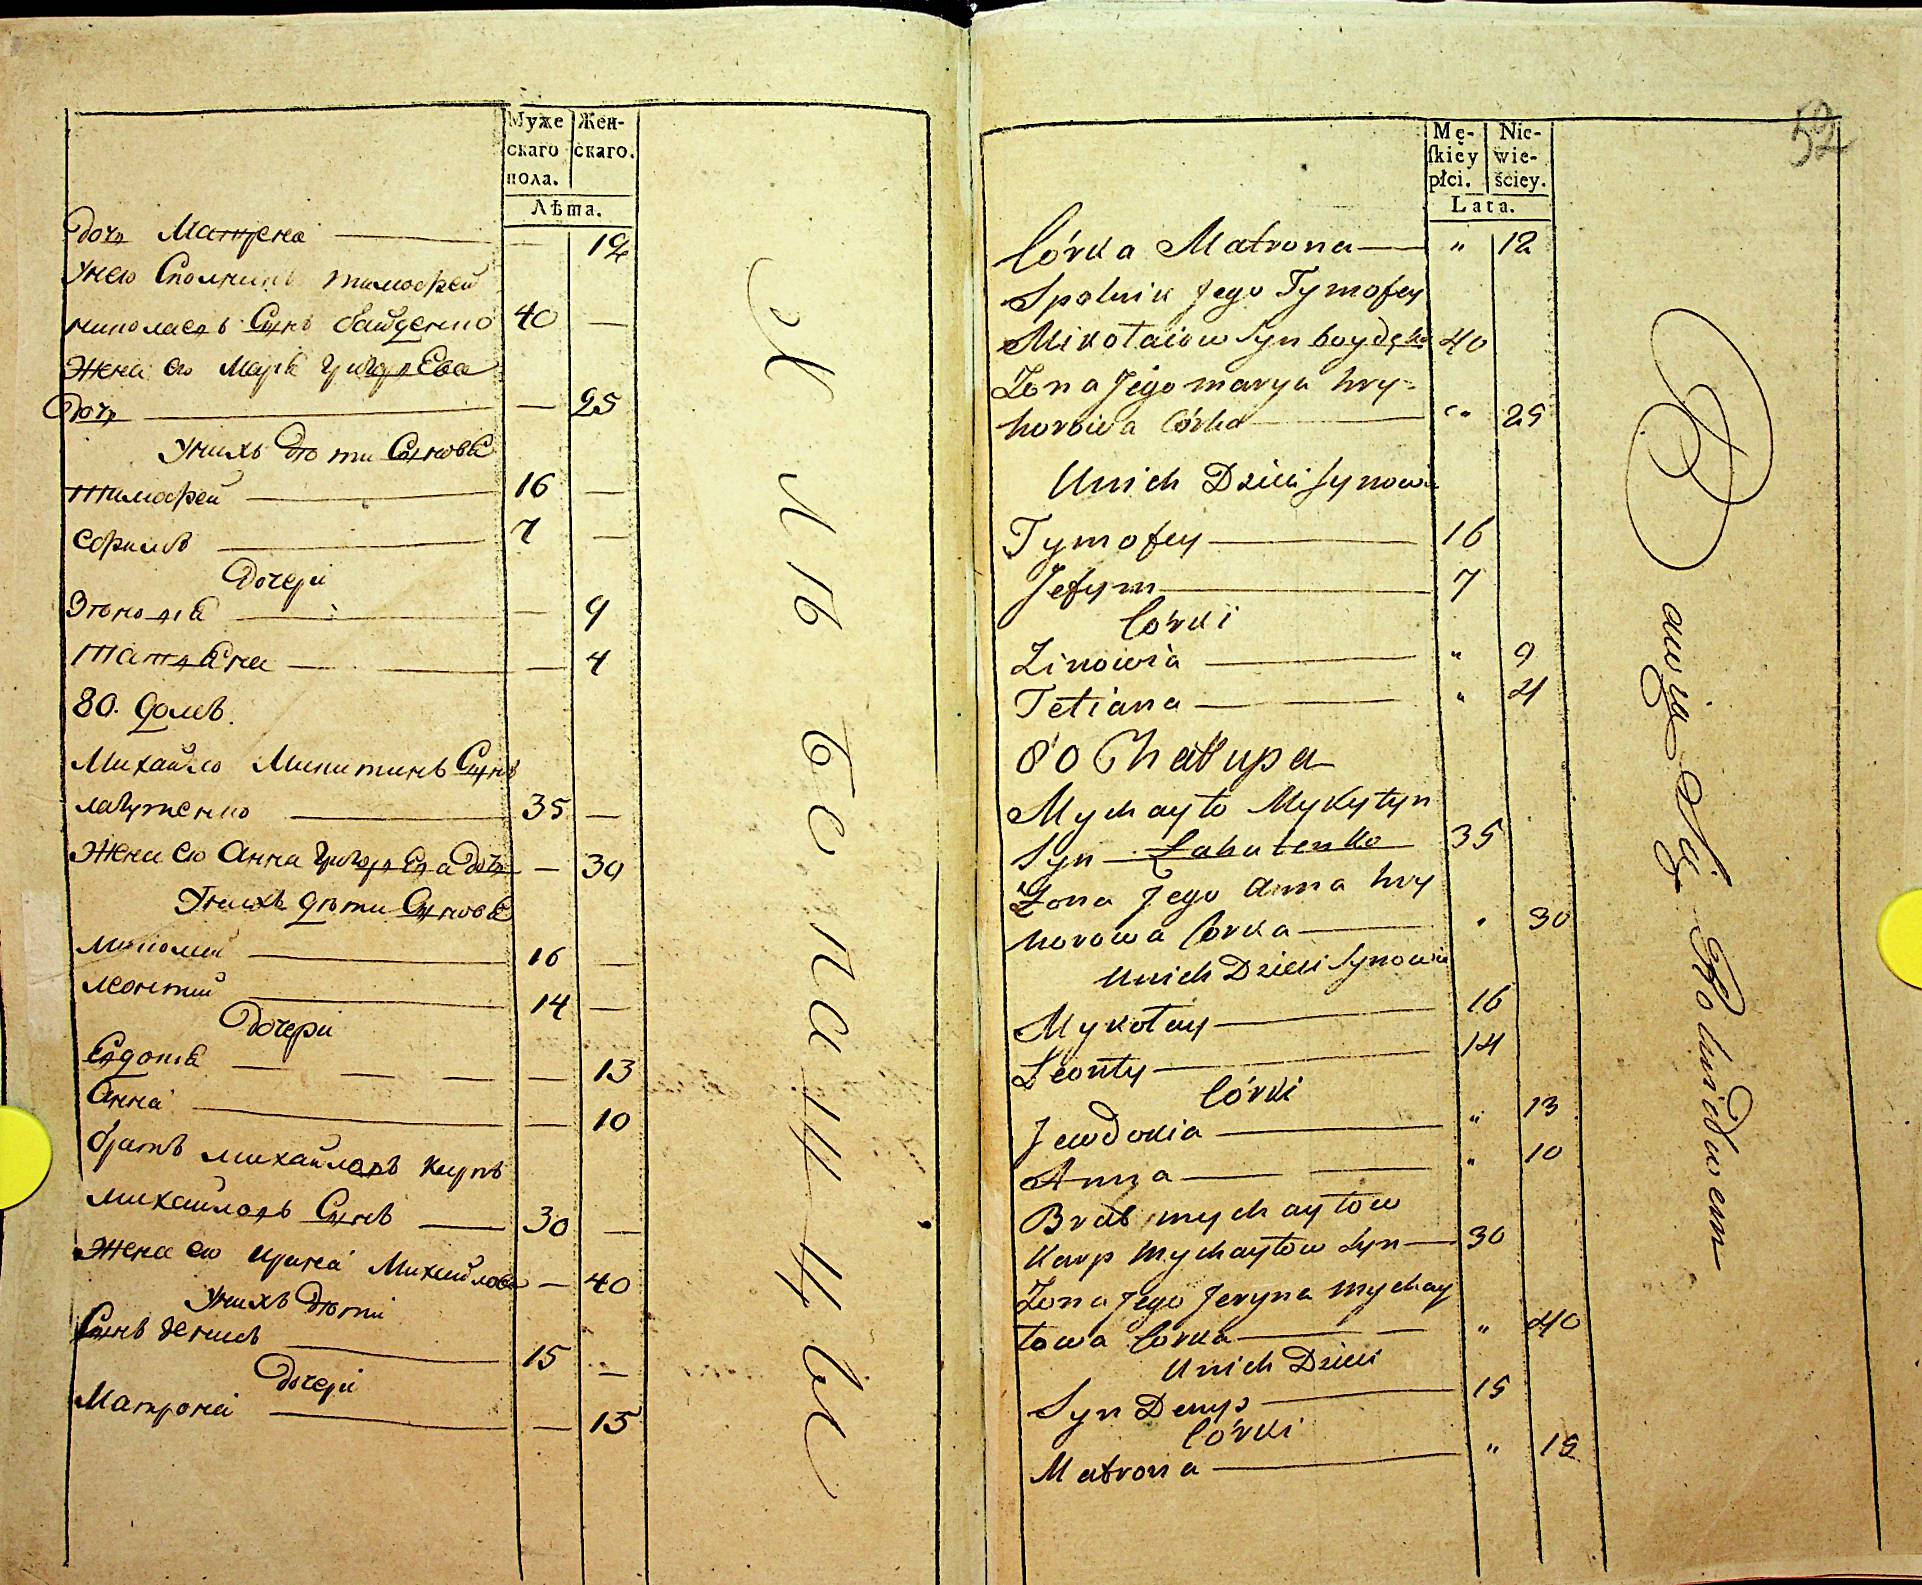 Муже
скаго
пола.
Жен-
скаго.
Лѣта.
дочь Матрена — 12
Унего Сполникъ тимофей
николаевъ Сынъ байденко 40 —
Жена его Марія Григорьева
дочь — 25
Унихъ дѣти Синовѣ
тимофей 16 —
ефимъ 7 —
дочери
Зѣновія — 9
татьяна — 4
80. домъ.
Михайло Микитинъ Сынъ
лагутенко 35 —
Жена его Анна Григорьева дочь — 30
Унихъ дѣти Сыновѣ
миколай 16 —
леонтій 14 —
дочери
Евдокія — 13
Анна — 10
братъ михайловъ карпъ
михайловъ Сынъ 30 —
Жена его ирина Михайлова — 40
Унихъ дѣти
Синъ денисъ 15 —
дочери
Матрона — 15
52
Mę-
ſkiey
płci.
Nie-
wie-
ściey.
Lata.
Córka Matrona — " 12
Spolnik Jego Tymofey
Mikołaiow Syn boydęko 40
Żona Jego marya hry-
horowa Córka — " 25
Unich Dzieci Synowie
Tymofey — 16
Jefym — 7
Córki
Zinowia — " 9
Tetiana — " 4
80 Chałupa
Mychayło Mykytyn
Syn Łahutenko 35
Żona Jego anna hry
horowa Córka — " 30
Unich Dzieci Synowie
Mykołay — 16
Leonty — 14
Córki
Jewdokia — " 13
Anna — " 10
Brat mychayłow
Karp Mychayłow Syn — 30
Żona Jego Jeryna mychay
łowa Córka — " 40
Unich Dzieci
Syn Denys — 15
Córki
Matrona — " 15